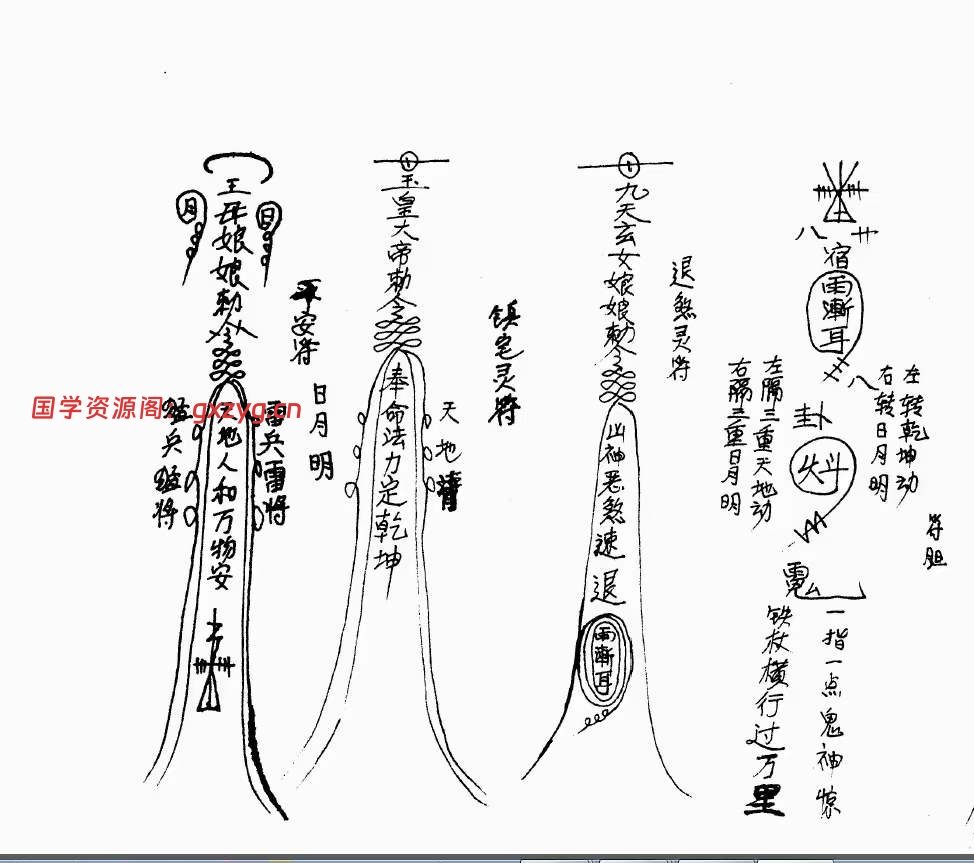 王母娘娘勅令
月
日
天地人和万物安
雷兵雷将
平安符
国学资源阁：gxzyg.cn
玉皇大帝勅令
奉命法力定乾坤
日月明
天地清
镇宅灵符
九天玄女娘娘勅令
凶神恶煞速退
雨漸耳
退煞灵符
八
廿
宿
雨漸耳
八
卦
左隔三重天地动
右隔三重日月明
左转乾坤动
右转日月明
符胆
一指一点鬼神惊
铁杖横行过万里